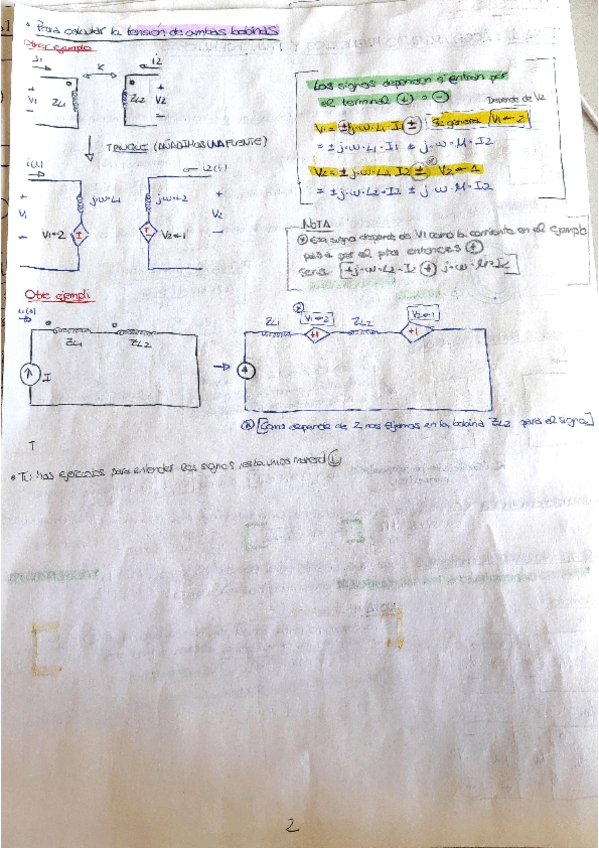 * Para calcular la tensión de ambas bobinas
Otro ejemplo
I1 K I2
+ V1 - ZL1 ZL2 + V2 -
TRUQUE (AÑADIMOS UNA FUENTE)
i1(t) i2(t)
+ V1 - j·w·L1 j·w·L2 + V2 -
V1←2 V2←1
Los signos dependen si entran por
el terminal (+) o (-)
Depende de V2
V1 = ± j·w·L1·I1 (±) Se genera V1←2
= ± j·w·L1·I1 ± j·w·M·I2
V2 = ± j·w·L2·I2 (±) V2←1
= ± j·w·L2·I2 ± j·w·M·I2
NOTA
Ese signo depende de V1 como la corriente en el ejemplo
pasa por el entonces (+)
Seria + j·w·L2·I2 (+) j·w·
Otro ejemplo
I ZL1 ZL2
ZL1 V1←2 ZL2 V2←1
+1 +1
[Como depende de 2 nos fijamos en la bobina ZL2 para el signo]
T
• Tu: haz ejercicios para entender los signos
2